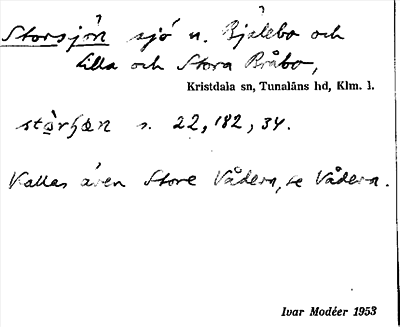 Storsjön sjö n. Bjälebo och
Lilla och Stora Bråbo,
Kristdala sn, Tunaläns hd, Klm. l.
stòrꞕən s. 22, 182, 34.
Kallas även Store Vådern, se Vådern.
Ivar Modéer 1953